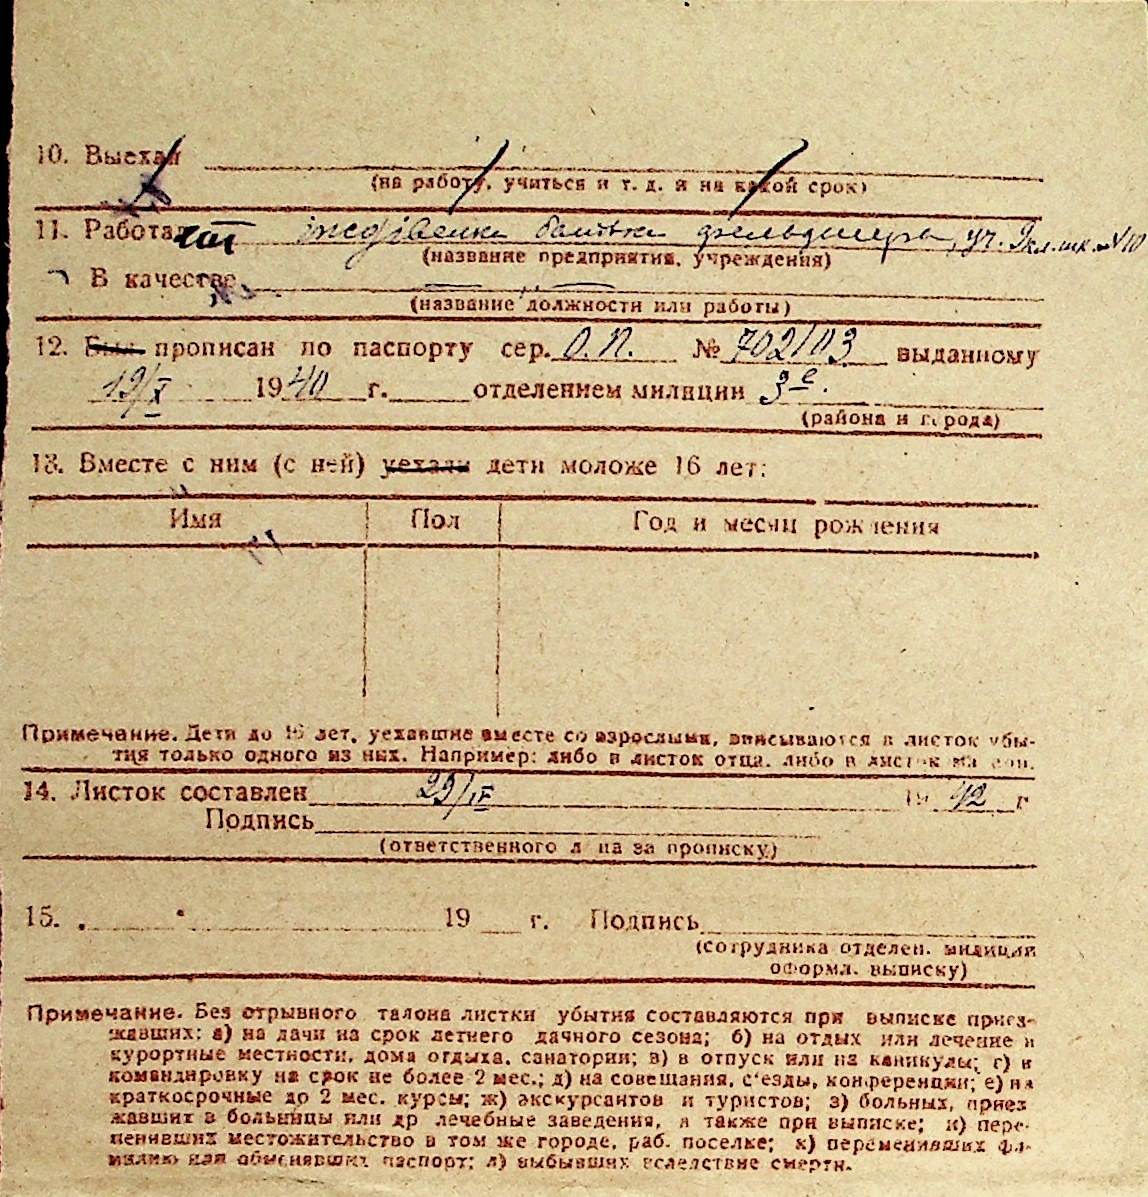 10. Выехал
(на работу, учиться и т. д. и на какой срок)
11. Работа
(название предприятия, учреждения)
В качестве
(название должности или работы)
12. Был прописан по паспорту сер. О.П. № 702103 выданному
19/X 1940 г. отделением милиции 3е.
(района и города)
13. Вместе с ним (с ней) уехали дети моложе 16 лет:
Имя Пол Год и месяц рождения
Примечание. Дети до 16 лет, уехавшие вместе со взрослыми, вписываются в листок убы-
тия только одного из них. Например: либо в листок отца, либо в листок
14. Листок составлен 29/IV 1942 г
Подпись
(ответственного лица за прописку)
15. 19 г. Подпись
(сотрудника отделен. милиции
оформл. выписку)
Примечание. Без отрывного талона листки убытия составляются при выписке приез-
жавших: а) на дачи на срок летнего дачного сезона; б) на отдых или лечение в
курортные местности, дома отдыха, санатории; в) в отпуск или на каникулы; г) в
командировку на срок не более 2 мес.; д) на совещания, с'езды, конференции; е) на
краткосрочные до 2 мес. курсы; ж) экскурсантов и туристов; з) больных, приез
жавших в больницы или др лечебные заведения, а также при выписке; и) пере-
менивших местожительство в том же городе, раб. поселке; к) переменивших фа-
милию или обменявших паспорт; л) выбывших вследствие смерти.